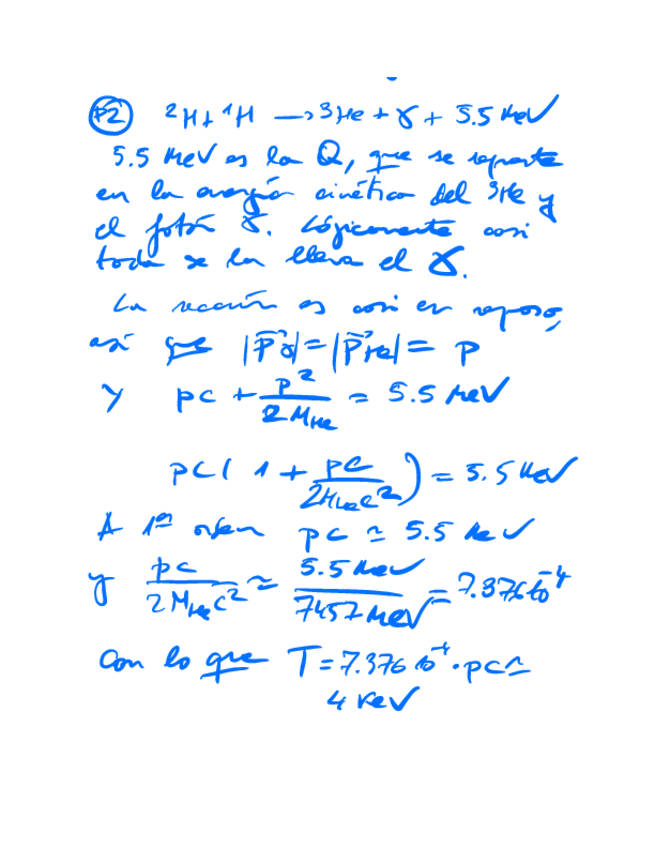 P2 ²H + ¹H → ³He + γ + 5.5 MeV
5.5 MeV es la Q, que se reparte
en la energía cinética del ³He y
el fotón γ. Lógicamente casi
toda se la lleva el γ.
La reacción es casi en reposo,
así que |p⃗γ| = |p⃗He| = p
y pc + p²/2M_He = 5.5 MeV
pc(1 + pc/2M_Hec²) = 5.5 MeV
A 1er orden pc ≃ 5.5 MeV
y pc/2M_Hec² ≃ 5.5 MeV/7457 MeV = 7.376 10⁻⁴
Con lo que T = 7.376 10⁻⁴ · pc ≃
4 keV